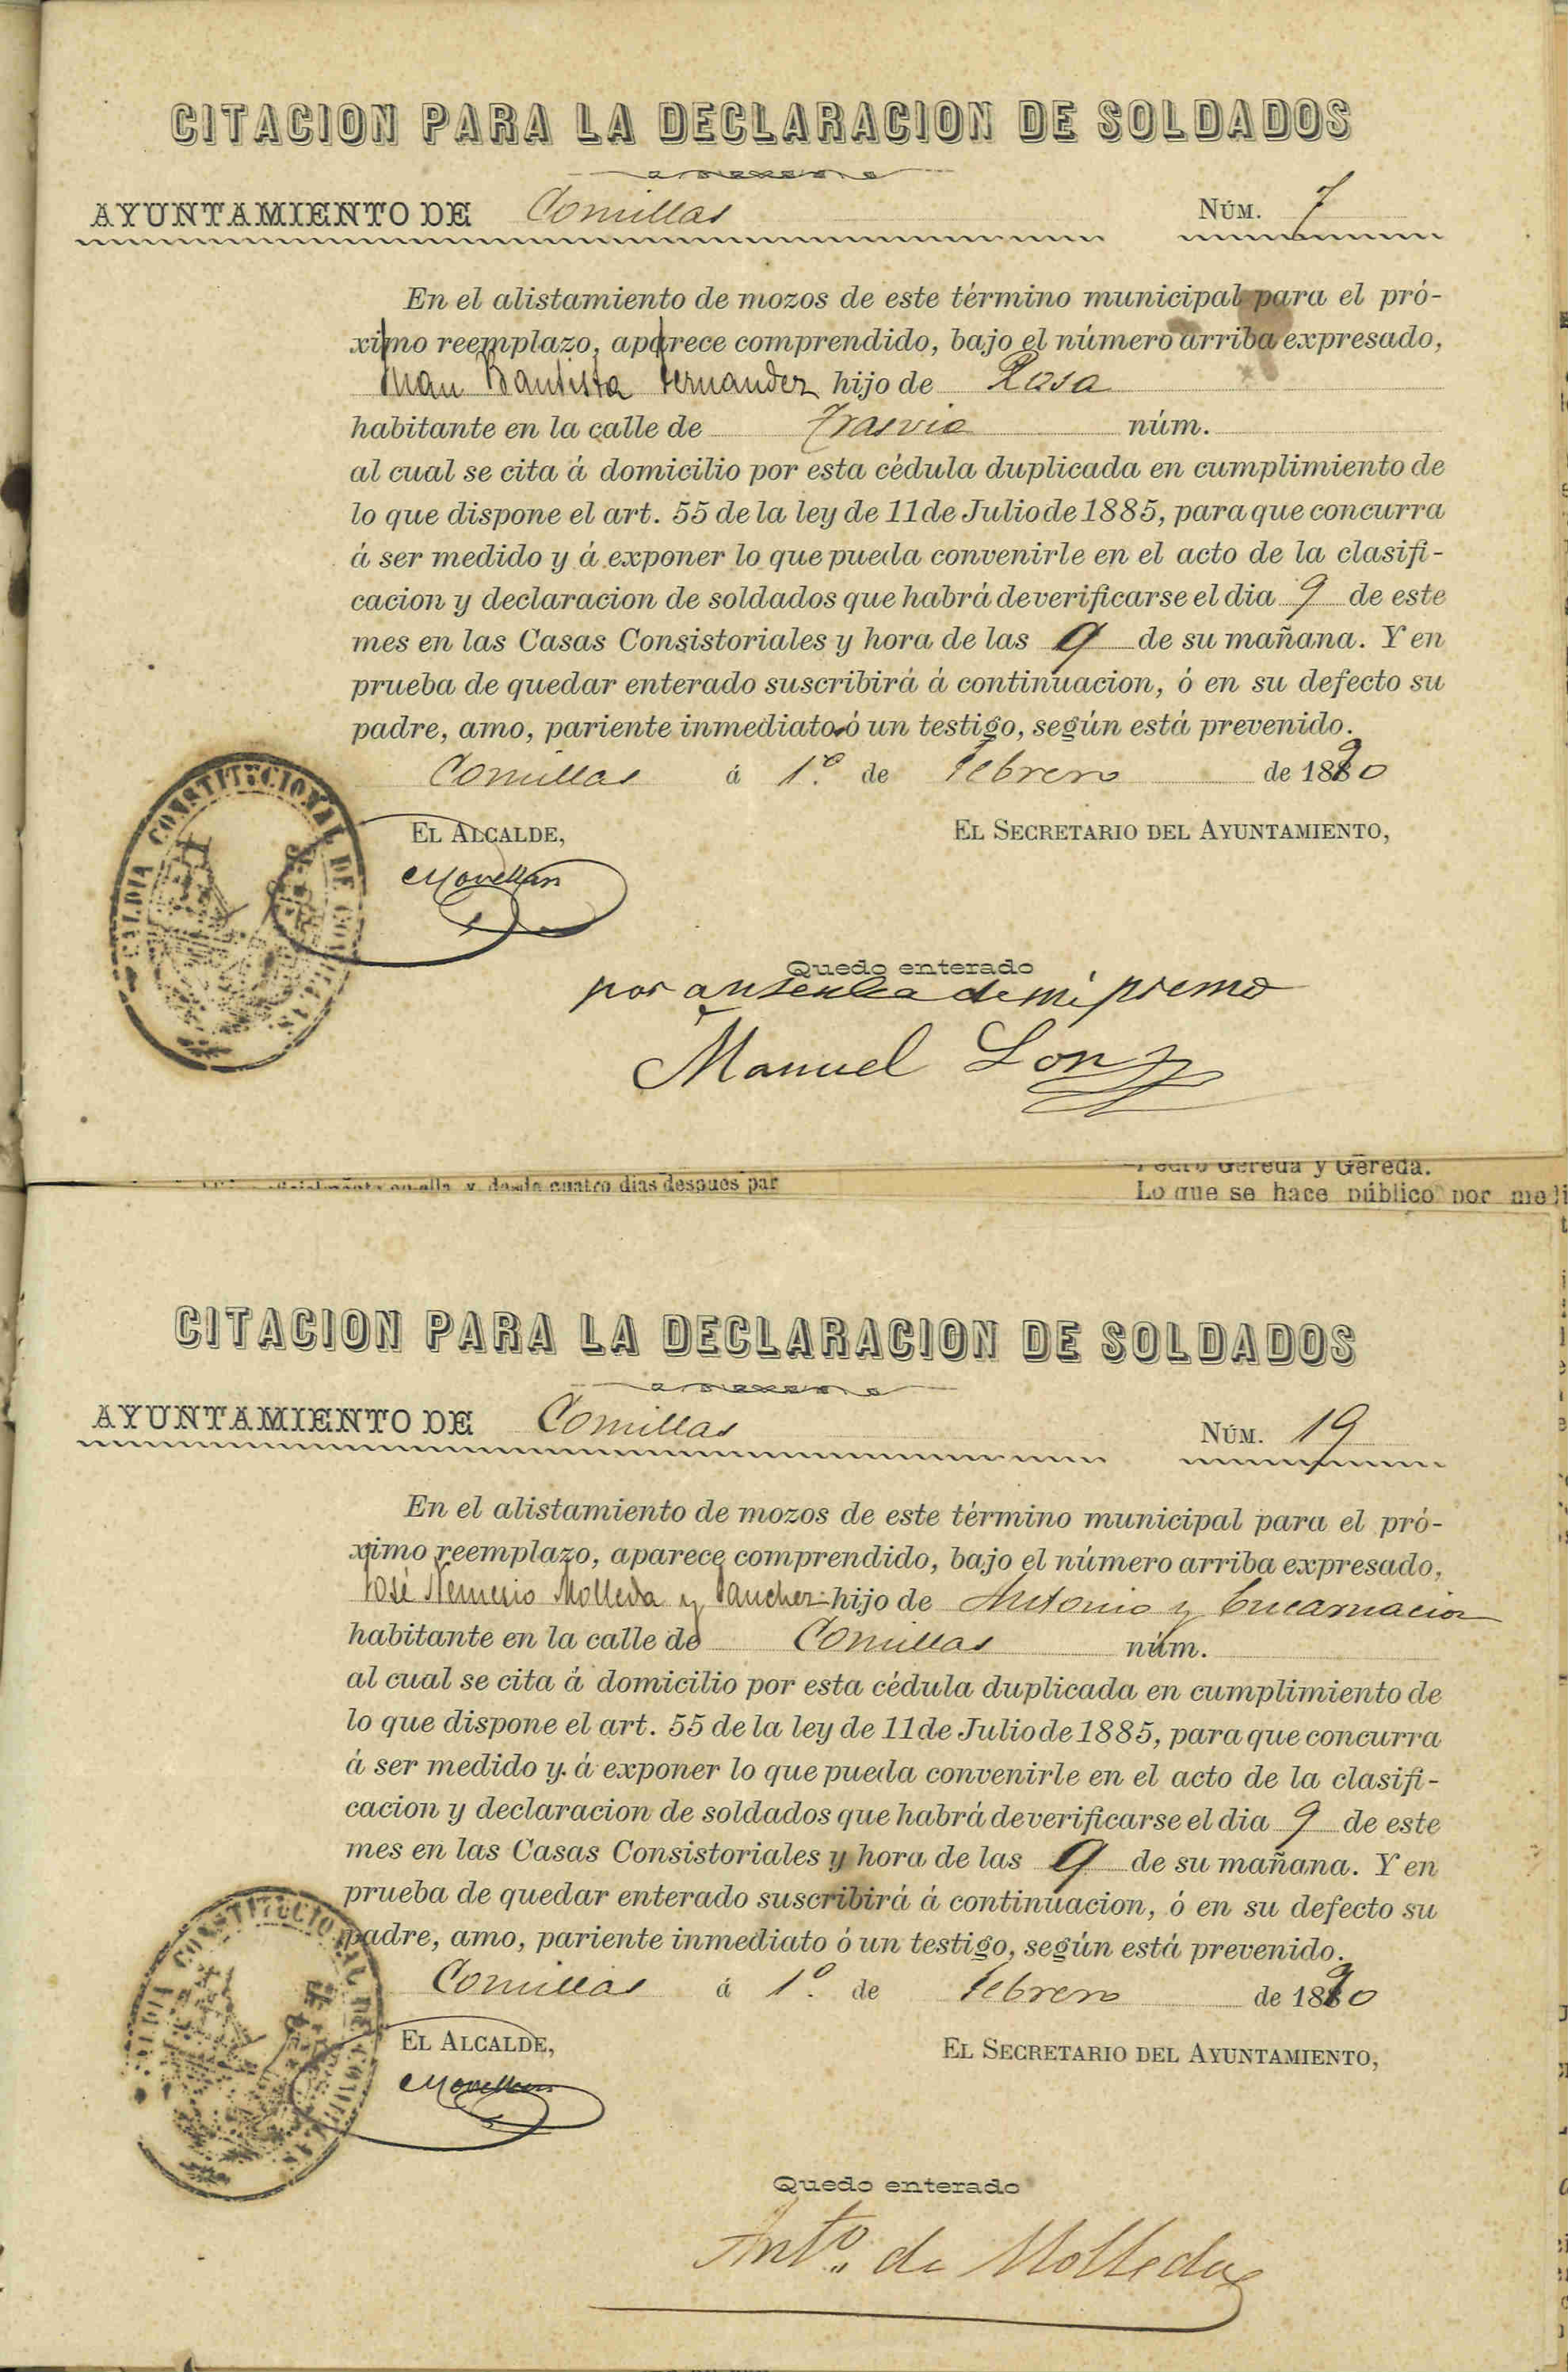 CITACION PARA LA DECLARACION DE SOLDADOS
AYUNTAMIENTO DE Comillas NÚM. 7
En el alistamiento de mozos de este término municipal para el pró-
ximo reemplazo, aparece comprendido, bajo el número arriba expresado,
Juan Bautista Fernandez hijo de Rosa
habitante en la calle de Trasvia núm.
al cual se cita á domicilio por esta cédula duplicada en cumplimiento de
lo que dispone el art. 55 de la ley de 11 de Julio de 1885, para que concurra
á ser medido y á exponer lo que pueda convenirle en el acto de la clasifi-
cacion y declaracion de soldados que habrá de verificarse el dia 9 de este
mes en las Casas Consistoriales y hora de las 9 de su mañana. Y en
prueba de quedar enterado suscribirá á continuacion, ó en su defecto su
padre, amo, pariente inmediato ó un testigo, según está prevenido.
Comillas á 1.º de Febrero de 1890
EL ALCALDE, EL SECRETARIO DEL AYUNTAMIENTO,
ALCALDIA CONSTITUCIONAL DE COMILLAS
Movellan
Quedo enterado
por ausencia de mi primo
Manuel
cuatro dias despues par
Pedro Gereda y Gereda.
Lo que se hace público por medi
CITACION PARA LA DECLARACION DE SOLDADOS
AYUNTAMIENTO DE Comillas NÚM. 19
En el alistamiento de mozos de este término municipal para el pró-
ximo reemplazo, aparece comprendido, bajo el número arriba expresado,
José Nemesio Molleda y Sanchez hijo de Antonio y Encarnacion
habitante en la calle de Comillas núm.
al cual se cita á domicilio por esta cédula duplicada en cumplimiento de
lo que dispone el art. 55 de la ley de 11 de Julio de 1885, para que concurra
á ser medido y á exponer lo que pueda convenirle en el acto de la clasifi-
cacion y declaracion de soldados que habrá de verificarse el dia 9 de este
mes en las Casas Consistoriales y hora de las 9 de su mañana. Y en
prueba de quedar enterado suscribirá á continuacion, ó en su defecto su
padre, amo, pariente inmediato ó un testigo, según está prevenido.
Comillas á 1.º de Febrero de 1890
EL ALCALDE, EL SECRETARIO DEL AYUNTAMIENTO,
ALCALDIA CONSTITUCIONAL DE COMILLAS
Movellan
Quedo enterado
Antº de Molleda